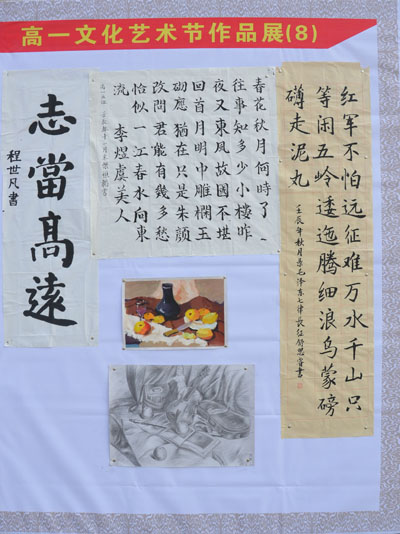 高一文化艺术节作品展(8)
红军不怕远征难万水千山只
等闲五岭逶迤腾细浪乌蒙磅
礴走泥丸
壬辰年秋月录毛泽东七律长征舒思睿書
春花秋月何時了
往事知多少小樓昨
夜又東風故國不堪
回首月明中雕欄玉
砌應猶在只是朱顏
改問君能有幾多愁
恰似一江春水向東
流 李煜虞美人
志當高遠
程世凡書